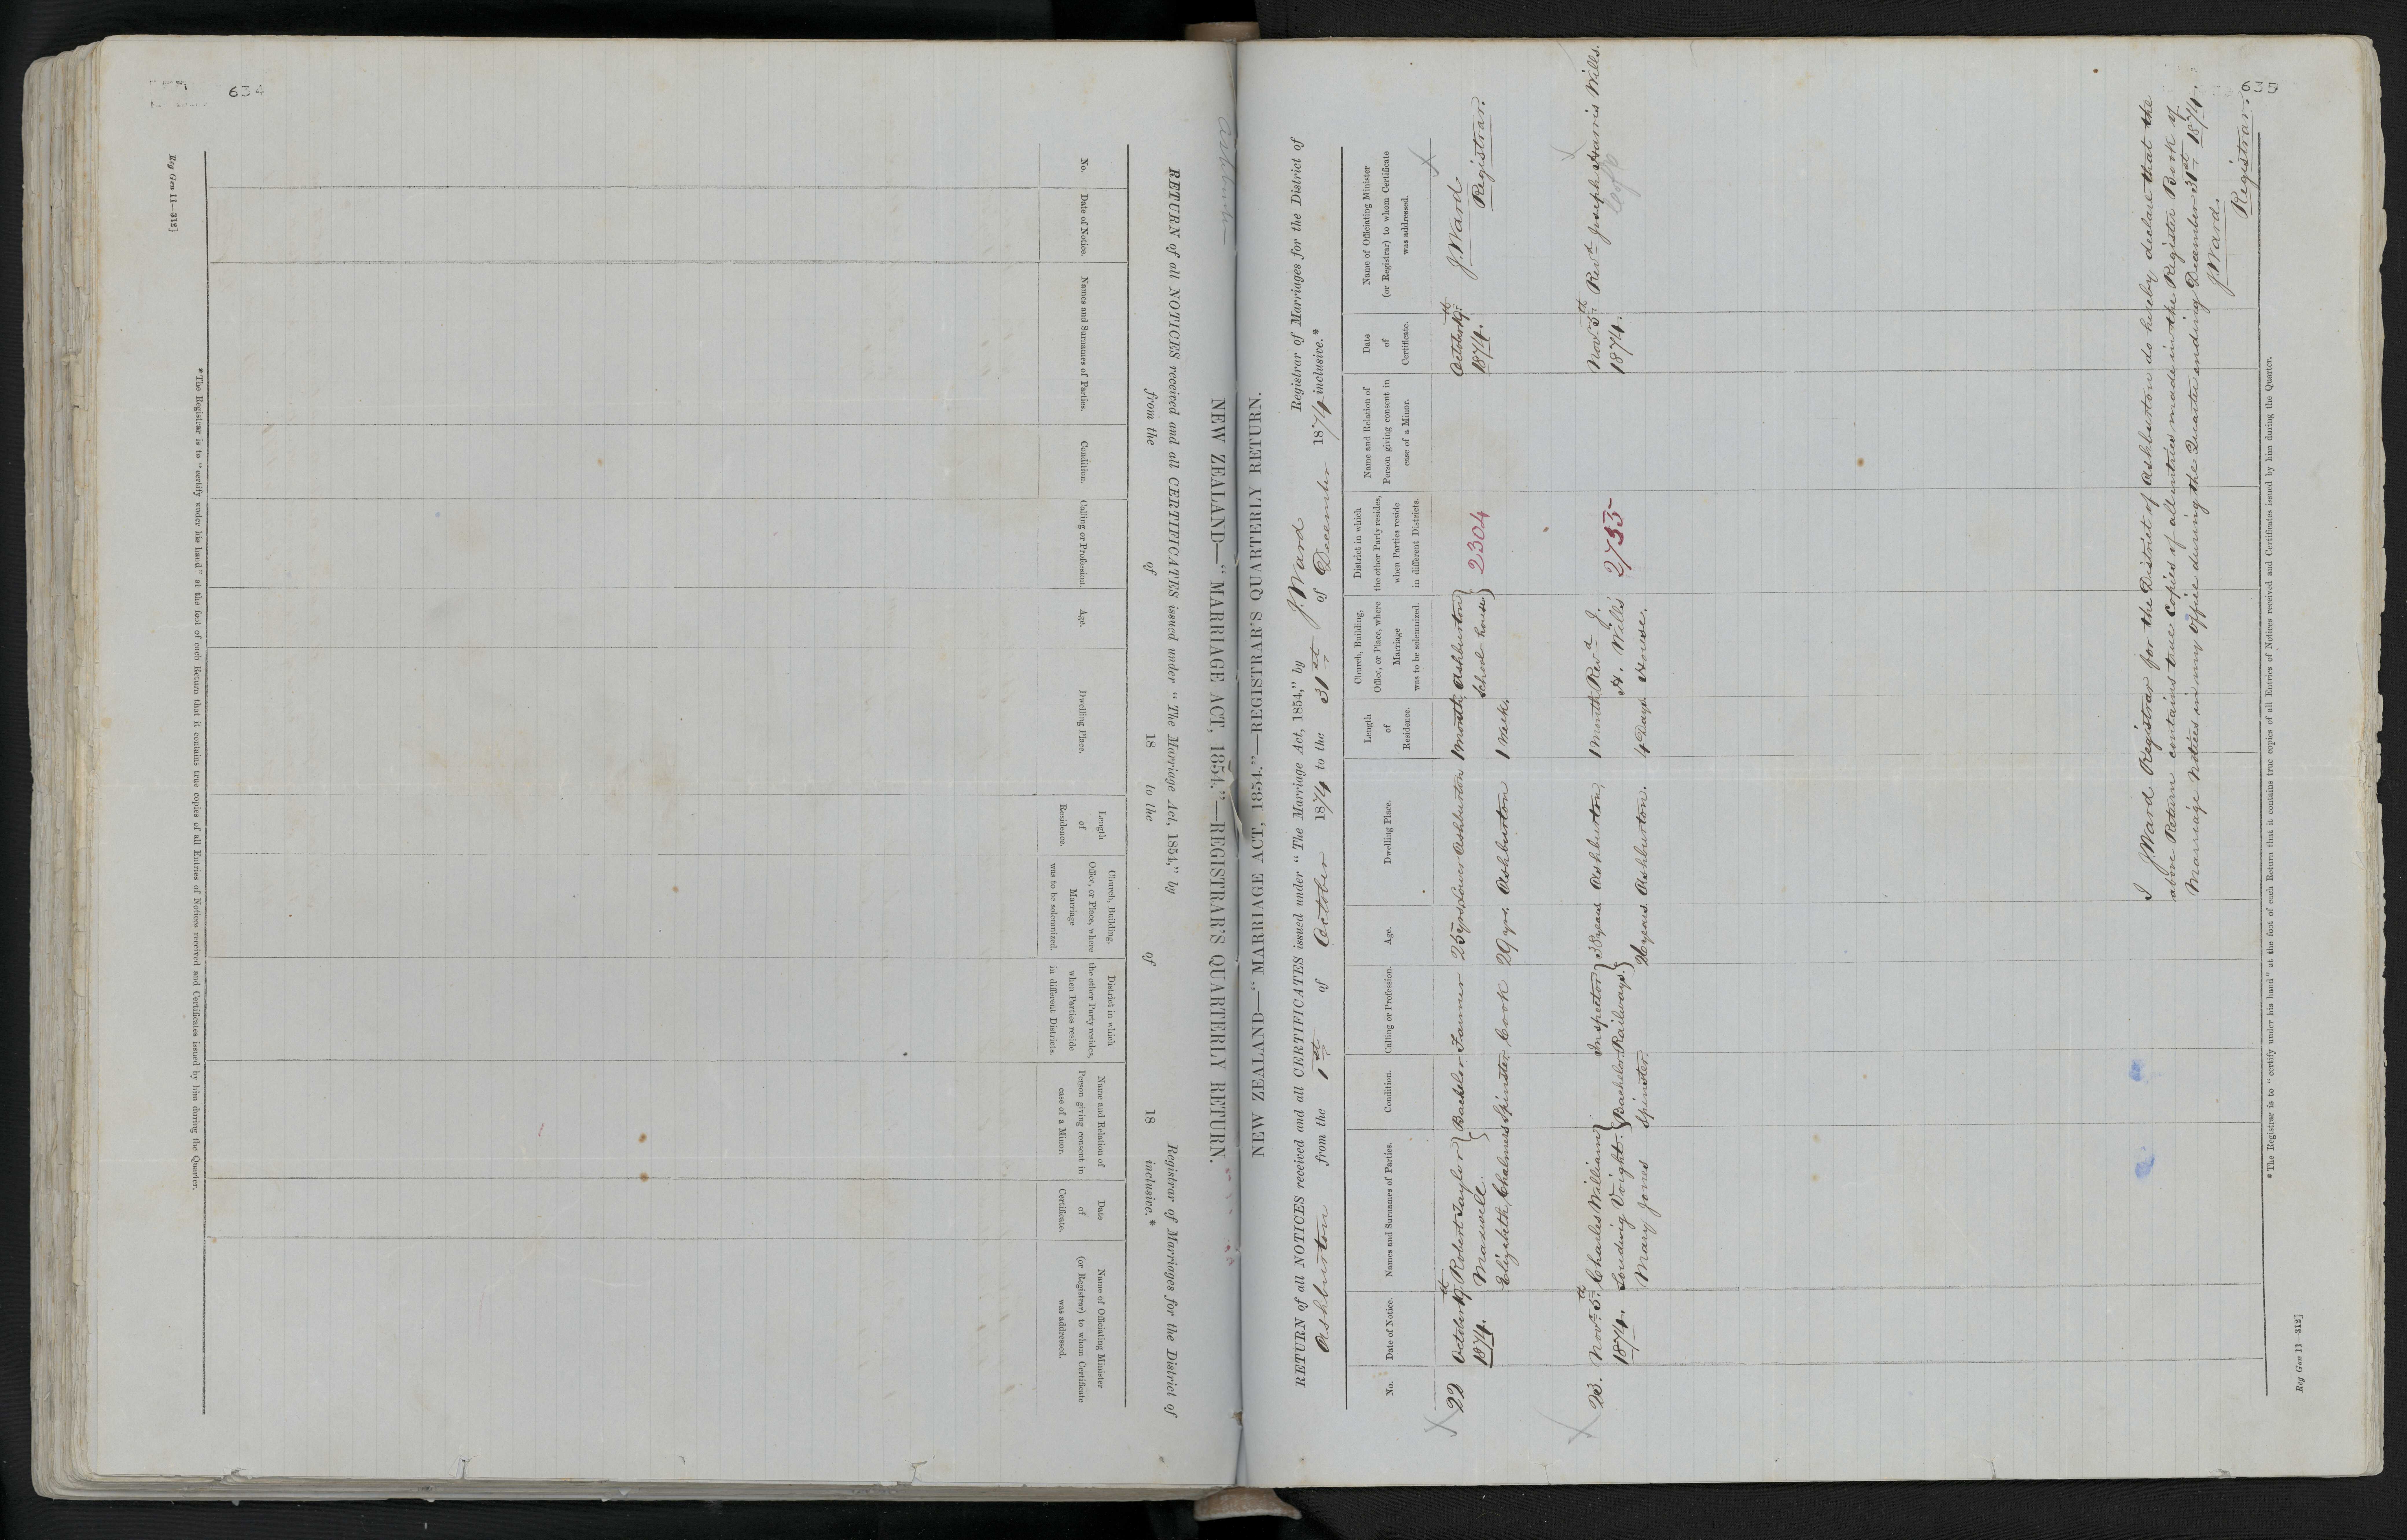 634
Reg Gen 11—312]
NEW ZEALAND—"MARRIAGE ACT, 1854."—REGISTRAR'S QUARTERLY RETURN.
RETURN of all NOTICES received and all CERTIFICATES issued under "The Marriage Act, 1854," by Registrar of Marriages for the District of
from the of 18 to the of 18 inclusive.*
No.
Date of Notice.
Names and Surnames of Parties.
Condition.
Calling or Profession.
Age.
Dwelling Place.
Length
of
Residence.
Church, Building,
Office, or Place, where
Marriage
was to be solemnized.
District in which
the other Party resides,
when Parties reside
in different Districts.
Name and Relation of
Person giving consent in
case of a Minor.
Date
of
Certificate.
Name of Officiating Minister
(or Registrar) to whom Certificate
was addressed.
*The Registrar is to "certify under his hand" at the foot of each Return that it contains true copies of all Entries of Notices received and Certificates issued by him during the Quarter.
635
NEW ZEALAND—"MARRIAGE ACT, 1854."—REGISTRAR'S QUARTERLY RETURN.
RETURN of all NOTICES received and all CERTIFICATES issued under "The Marriage Act, 1854," by J. Ward Registrar of Marriages for the District of
Ashburton from the 1st of October 1874 to the 31st of December 1874 inclusive.*
No.
Date of Notice.
Names and Surnames of Parties.
Condition.
Calling or Profession.
Age.
Dwelling Place.
Length
of
Residence.
Church, Building,
Office, or Place, where
Marriage
was to be solemnized.
District in which
the other Party resides,
when Parties reside
in different Districts.
Name and Relation of
Person giving consent in
case of a Minor.
Date
of
Certificate.
Name of Officiating Minister
(or Registrar) to whom Certificate
was addressed.
22 October 19th Robert Taylor Bachelor Farmer 25 yrs Lower Ashburton 1 month Ashburton October 19th J. Ward
1874. Maxwell School house 2304 1874. Registrar.
Elizabeth Chalmers Spinster Cook 29 yrs. Ashburton 1 Week.
23. Novr. 5th Charles William Inspector 38 years Ashburton, 1 Month Revd J. Novr 5th Revd Joseph Harris Wills.
1874. Loudwig Voight. Bachelor Railways. H. Wills' 2735 1874.
Mary Jones Spinster. 26 years Ashburton. 4 Days House.
I J. Ward Registrar for the District of Ashburton do hereby declare that the
above Return contains true Copies of all entries made in the Register Book of
Marriage Notices in my Office during the Quarter ending December 31st 1874.
J. Ward.
Registrar.
*The Registrar is to "certify under his hand" at the foot of each Return that it contains true copies of all Entries of Notices received and Certificates issued by him during the Quarter.
Reg Gen 11—312]